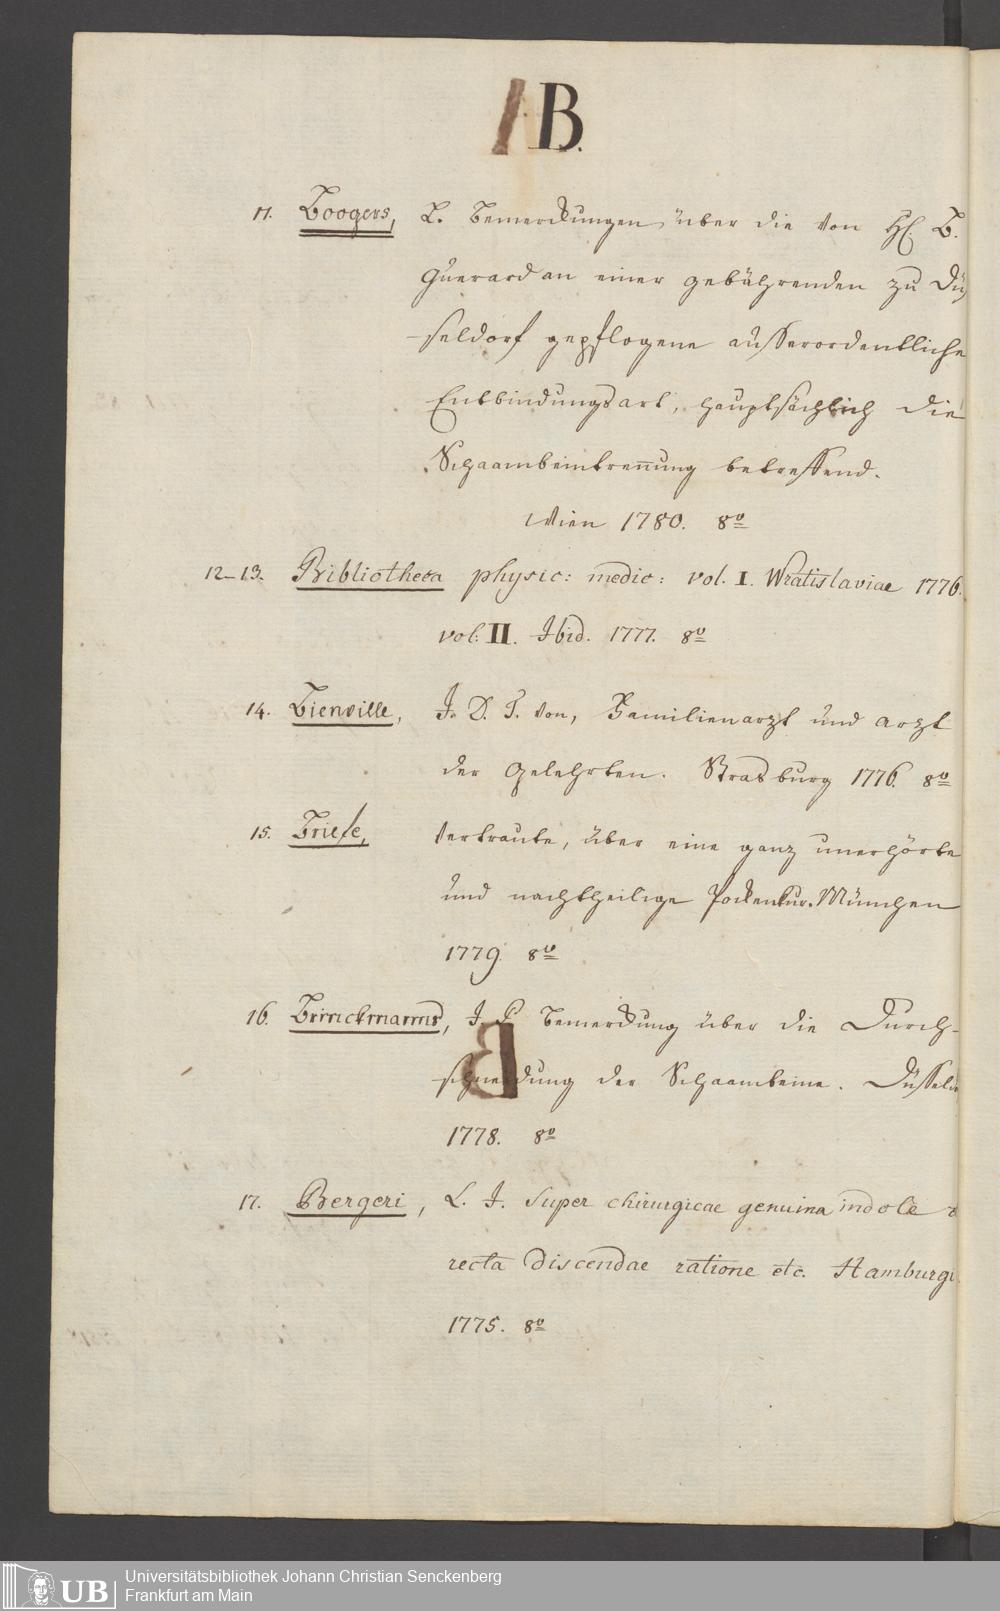 B.
11. Boogers, L. Bemerckungen über die von H. B.
Guerard an einer gebährenden zu Düs
seldorf gepflogene ausserordentliche
Entbindungsart, hauptsächlich die
Schaambeintrennung betreffend.
Wien 1780. 8º
12-13. Bibliotheca physic: medic: vol. I. Wratislaviae 1776.
vol: II. Ibid. 1777. 8º
14. Bienville, J. D. T. von, Familienarzt und arzt
der Gelehrten. Strasburg 1776. 8º
15. Briefe, Vertraute, über eine ganz unerhörte
und nachtheilige Pockenkur. München
1779. 8º
16. Brinckmanns, J. P. Bemerckung über die Durch-
schneidung der Schaambeine. Düsseld
1778. 8º
17. Bergeri, L. J. Super chirurgicae genuina indole &
recta discendae ratione etc. Hamburgi
1775. 8º
UB
Universitätsbibliothek Johann Christian Senckenberg
Frankfurt am Main